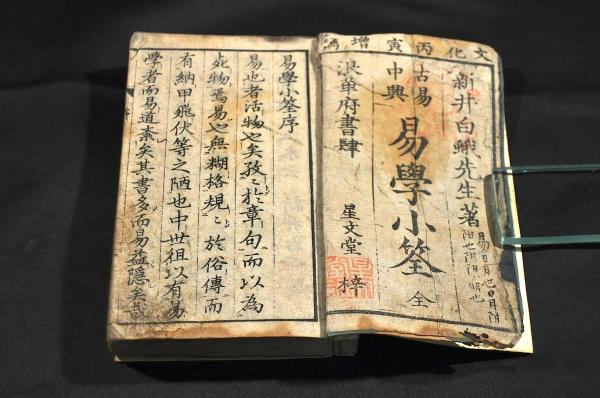 文化丙寅增
新井白蛾先生著
古易
中興
易學小筌 全
浪華府書肆 星文堂 梓
易學小筌序
易也者活物也矣孜〻於章句而以為
死物焉易也無糊格規〻於俗傳而
有納甲飛伏等之陋也中世徂以有易
學者而易道紊矣其書多而易益隱